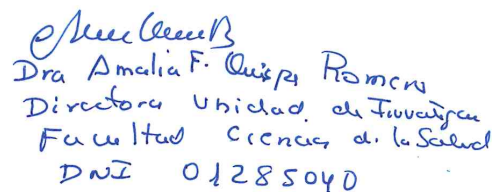 Dra Amalia F. Quispe Romero
Directora Unidad de Investigac
Facultad Ciencias de la Salud
DNI 01285040